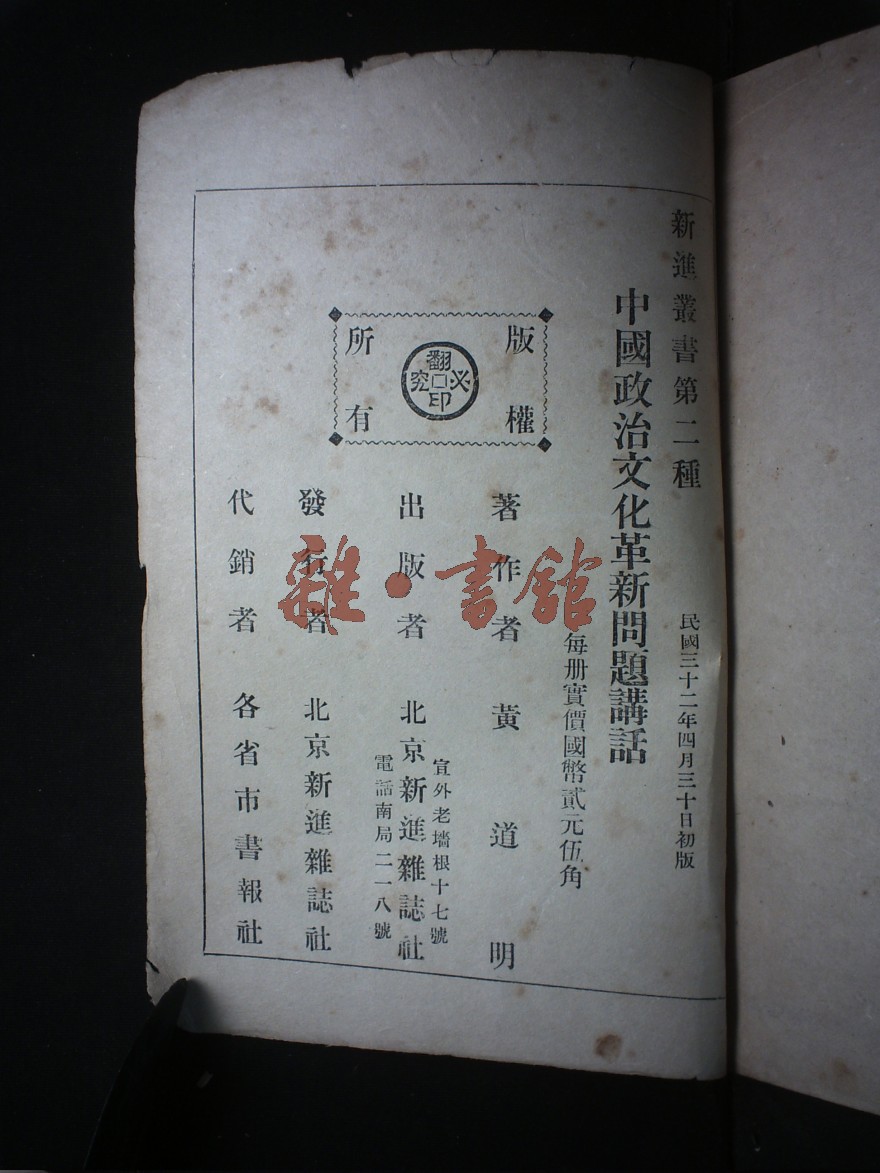 新進叢書第二種
民國三十二年四月三十日初版
中國政治文化革新問題講話
每册實價國幣貳元伍角
版權
所有
翻印必究
著作者 黃道明
出版者 北京新進雜誌社
宣外老墻根十七號
電話南局二一八號
發行者 北京新進雜誌社
代銷者 各省市書報社
雜·書館